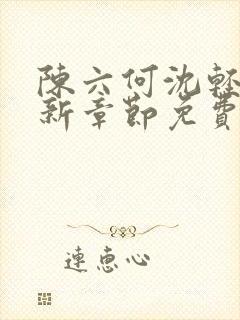 陳六何沈輕
新章節免費
連惠心